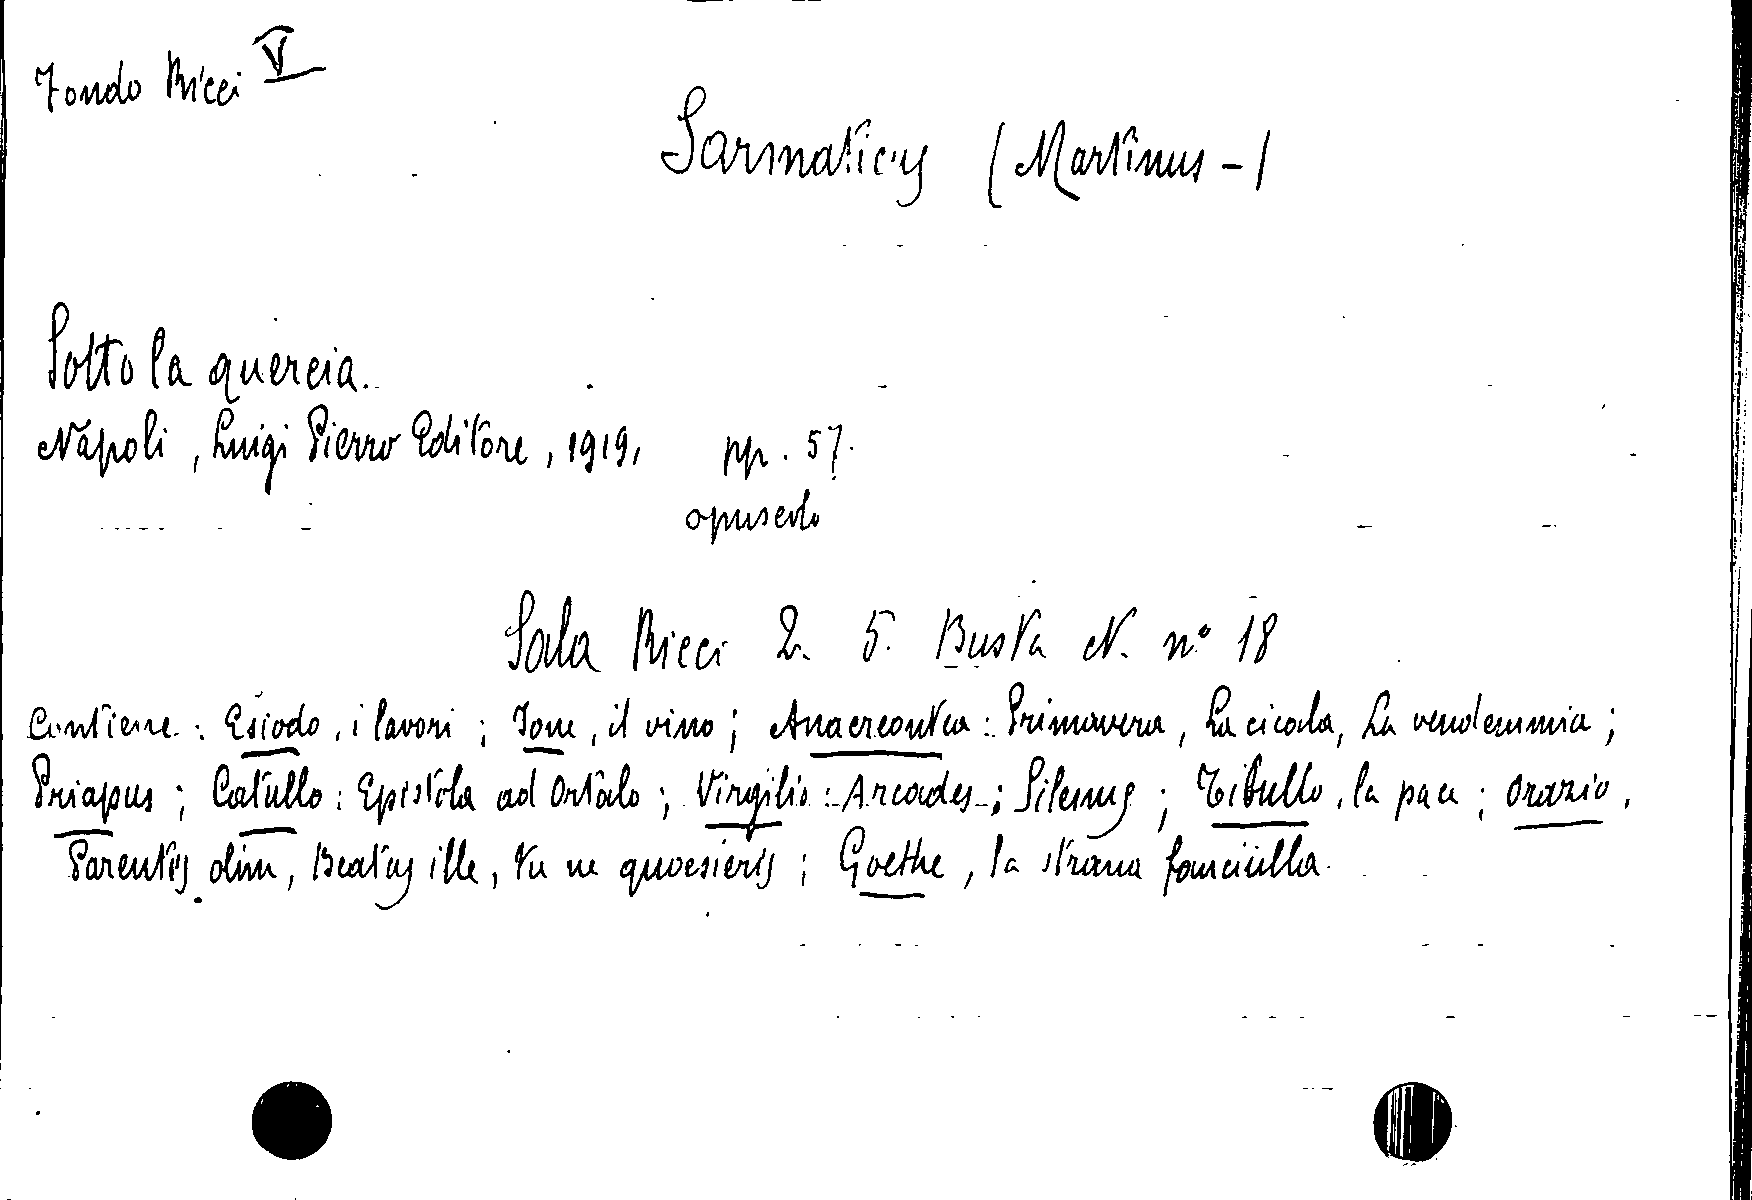 Fondo Ricci V
Sarmaticus (Martinus -)
Sotto la quercia.
Napoli, Luigi Pierro Editore, 1919, pp. 57.
opuscolo
Sala Ricci 2. 5. Busta N. n° 18
Contiene: Esiodo, i lavori; Ione, il vino; Anacreontea: Primavera, La cicala, La vendemmia;
Priapus; Catullo: Epistola ad Ortalo; Virgilio: Arcades; Silenus; Tibullo, la pace; Orazio,
Parentis olim, Beatus ille, Tu ne quaesieris; Goethe, la strana fanciulla.